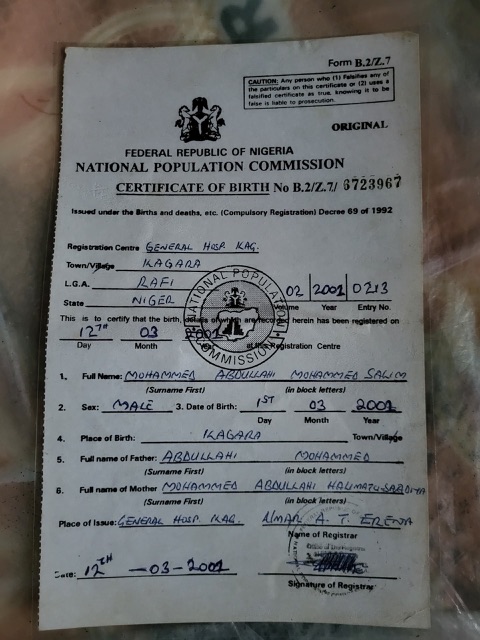 Form B.2/Z.7
CAUTION: Any person who (1) Falsifies any of
the particulars on this certificate or (2) uses a
falsified certificate as true, knowing it to be
false is liable to prosecution.
ORIGINAL
FEDERAL REPUBLIC OF NIGERIA
NATIONAL POPULATION COMMISSION
CERTIFICATE OF BIRTH No B.2/Z.7/ 6723967
Issued under the Births and deaths, etc. (Compulsory Registration) Decree 69 of 1992
Registration Centre GENERAL HOSP KAG.
Town/Village KAGARA
L.G.A. RAFI 02 2001 0213
State NIGER Volume Year Entry No.
NATIONAL POPULATION COMMISSION
This is to certify that the birth, details of which are recorded herein has been registered on
12TH 03 2001 at this Registration Centre
Day Month Year
1. Full Name: MOHAMMED ABDULLAHI MOHAMMED SALIM
(Surname First) (in block letters)
2. Sex: MALE 3. Date of Birth: 1ST 03 2001
Day Month Year
4. Place of Birth: KAGARA Town/Village
5. Full name of Father: ABDULLAHI MOHAMMED
(Surname First) (in block letters)
6. Full name of Mother MOHAMMED ABDULLAHI HALIMATU-SAADIYA
(Surname First) (in block letters)
Place of Issue: GENERAL HOSP KAG. UMAR A. T.
Name of Registrar
Date: 12TH -03-2001
Signature of Registrar